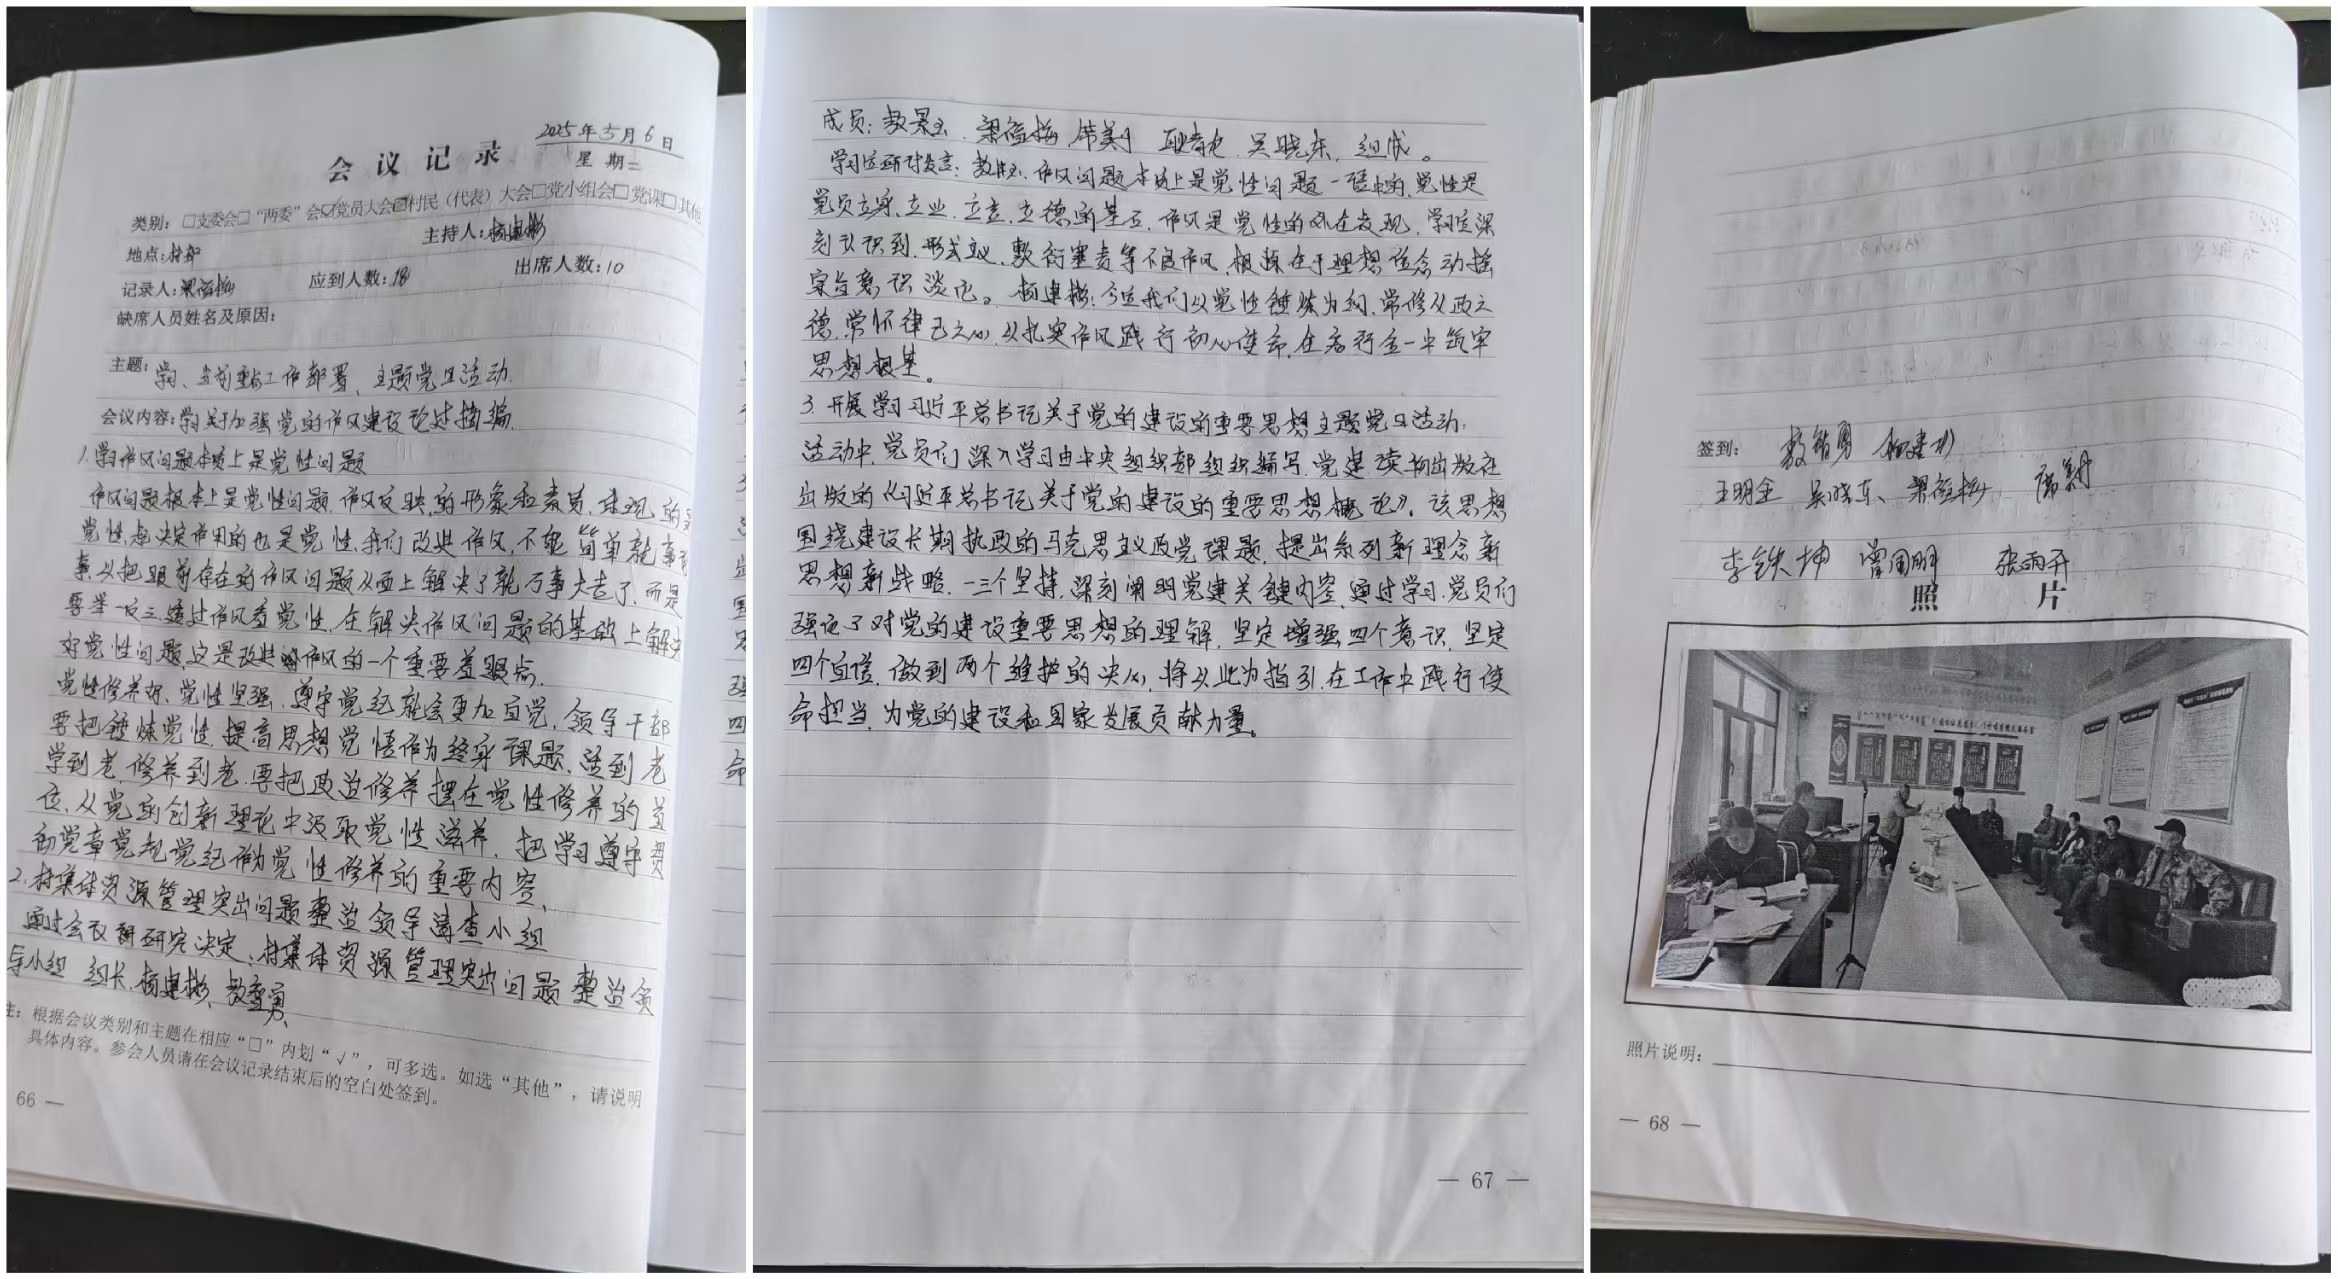 2025年5月6日
会议记录
星期二
类别：□支委会□“两委”会☑党员大会☑村民（代表）大会□党小组会□党课□其他
地点：村部
主持人：杨建彬
记录人：梁蕴梅
应到人数：18
出席人数：10
缺席人员姓名及原因：
主题：学习、当前重点工作部署、主题党日活动.
会议内容：学习关于加强党的作风建设论述摘编.
1.学习作风问题本质上是党性问题
作风问题根本上是党性问题.作风反映的形象和素质,体现的是
党性,起决定作用的也是党性.我们改进作风,不能简单就事论
事,以把眼前存在的作风问题从面上解决了就万事大吉了,而是
要举一反三,透过作风看党性,在解决作风问题的基础上解决
好党性问题,这是改进作风的一个重要着眼点.
党性修养好、党性坚强,遵守党纪就会更加自觉,领导干部
要把锤炼党性,提高思想觉悟作为终身课题,活到老
学到老,修养到老.要把政治修养摆在党性修养的首
位,从党的创新理论中汲取党性滋养,把学习遵守贯
彻党章党规党纪作为党性修养的重要内容、
2.村集体资源管理突出问题整治领导清查小组
通过会议研究决定:村集体资源管理突出问题整治领
导小组 组长,杨建彬、敖智勇、
注：根据会议类别和主题在相应“□”内划“√”，可多选。如选“其他”，请说明
具体内容。参会人员请在会议记录结束后的空白处签到。
66 —
成员:敖景玉、梁蕴梅、席美丹 耿春屯、吴晓东,组成。
学习运研讨发言:敖景玉、作风问题本质上是党性问题一语中的,党性是
党员立身、立业、立言、立德的基石,作风是党性的外在表现,学习应深
刻认识到,形式主义、敷衍塞责等不良作风,根源在于理想信念动摇
宗旨意识淡化。杨建彬:今后我们以党性锤炼为纲,常修从政之
德,常怀律己之心,以扎实作风践行初心使命,在知行合一中筑牢
思想根基。
3.开展学习习近平总书记关于党的建设的重要思想主题党日活动:
活动中,党员们深入学习由中央组织部组织编写,党建读物出版在
出版的《习近平总书记关于党的建设的重要思想概论》。该思想
围绕建设长期执政的马克思主义政党课题,提出系列新理念新
思想新战略,一三个坚持,深刻阐明党建关键内容,通过学习,党员们
强化了对党的建设重要思想的理解,坚定增强四个意识,坚定
四个自信,做到两个维护的决心,将以此为指引,在工作中践行使
命担当,为党的建设和国家发展贡献力量。
— 67 —
签到：敖智勇 杨建彬
王明全 吴晓东、梁蕴梅 席美丹
李铁坤 曾国胜 张雨开
照片
照片说明：
— 68 —